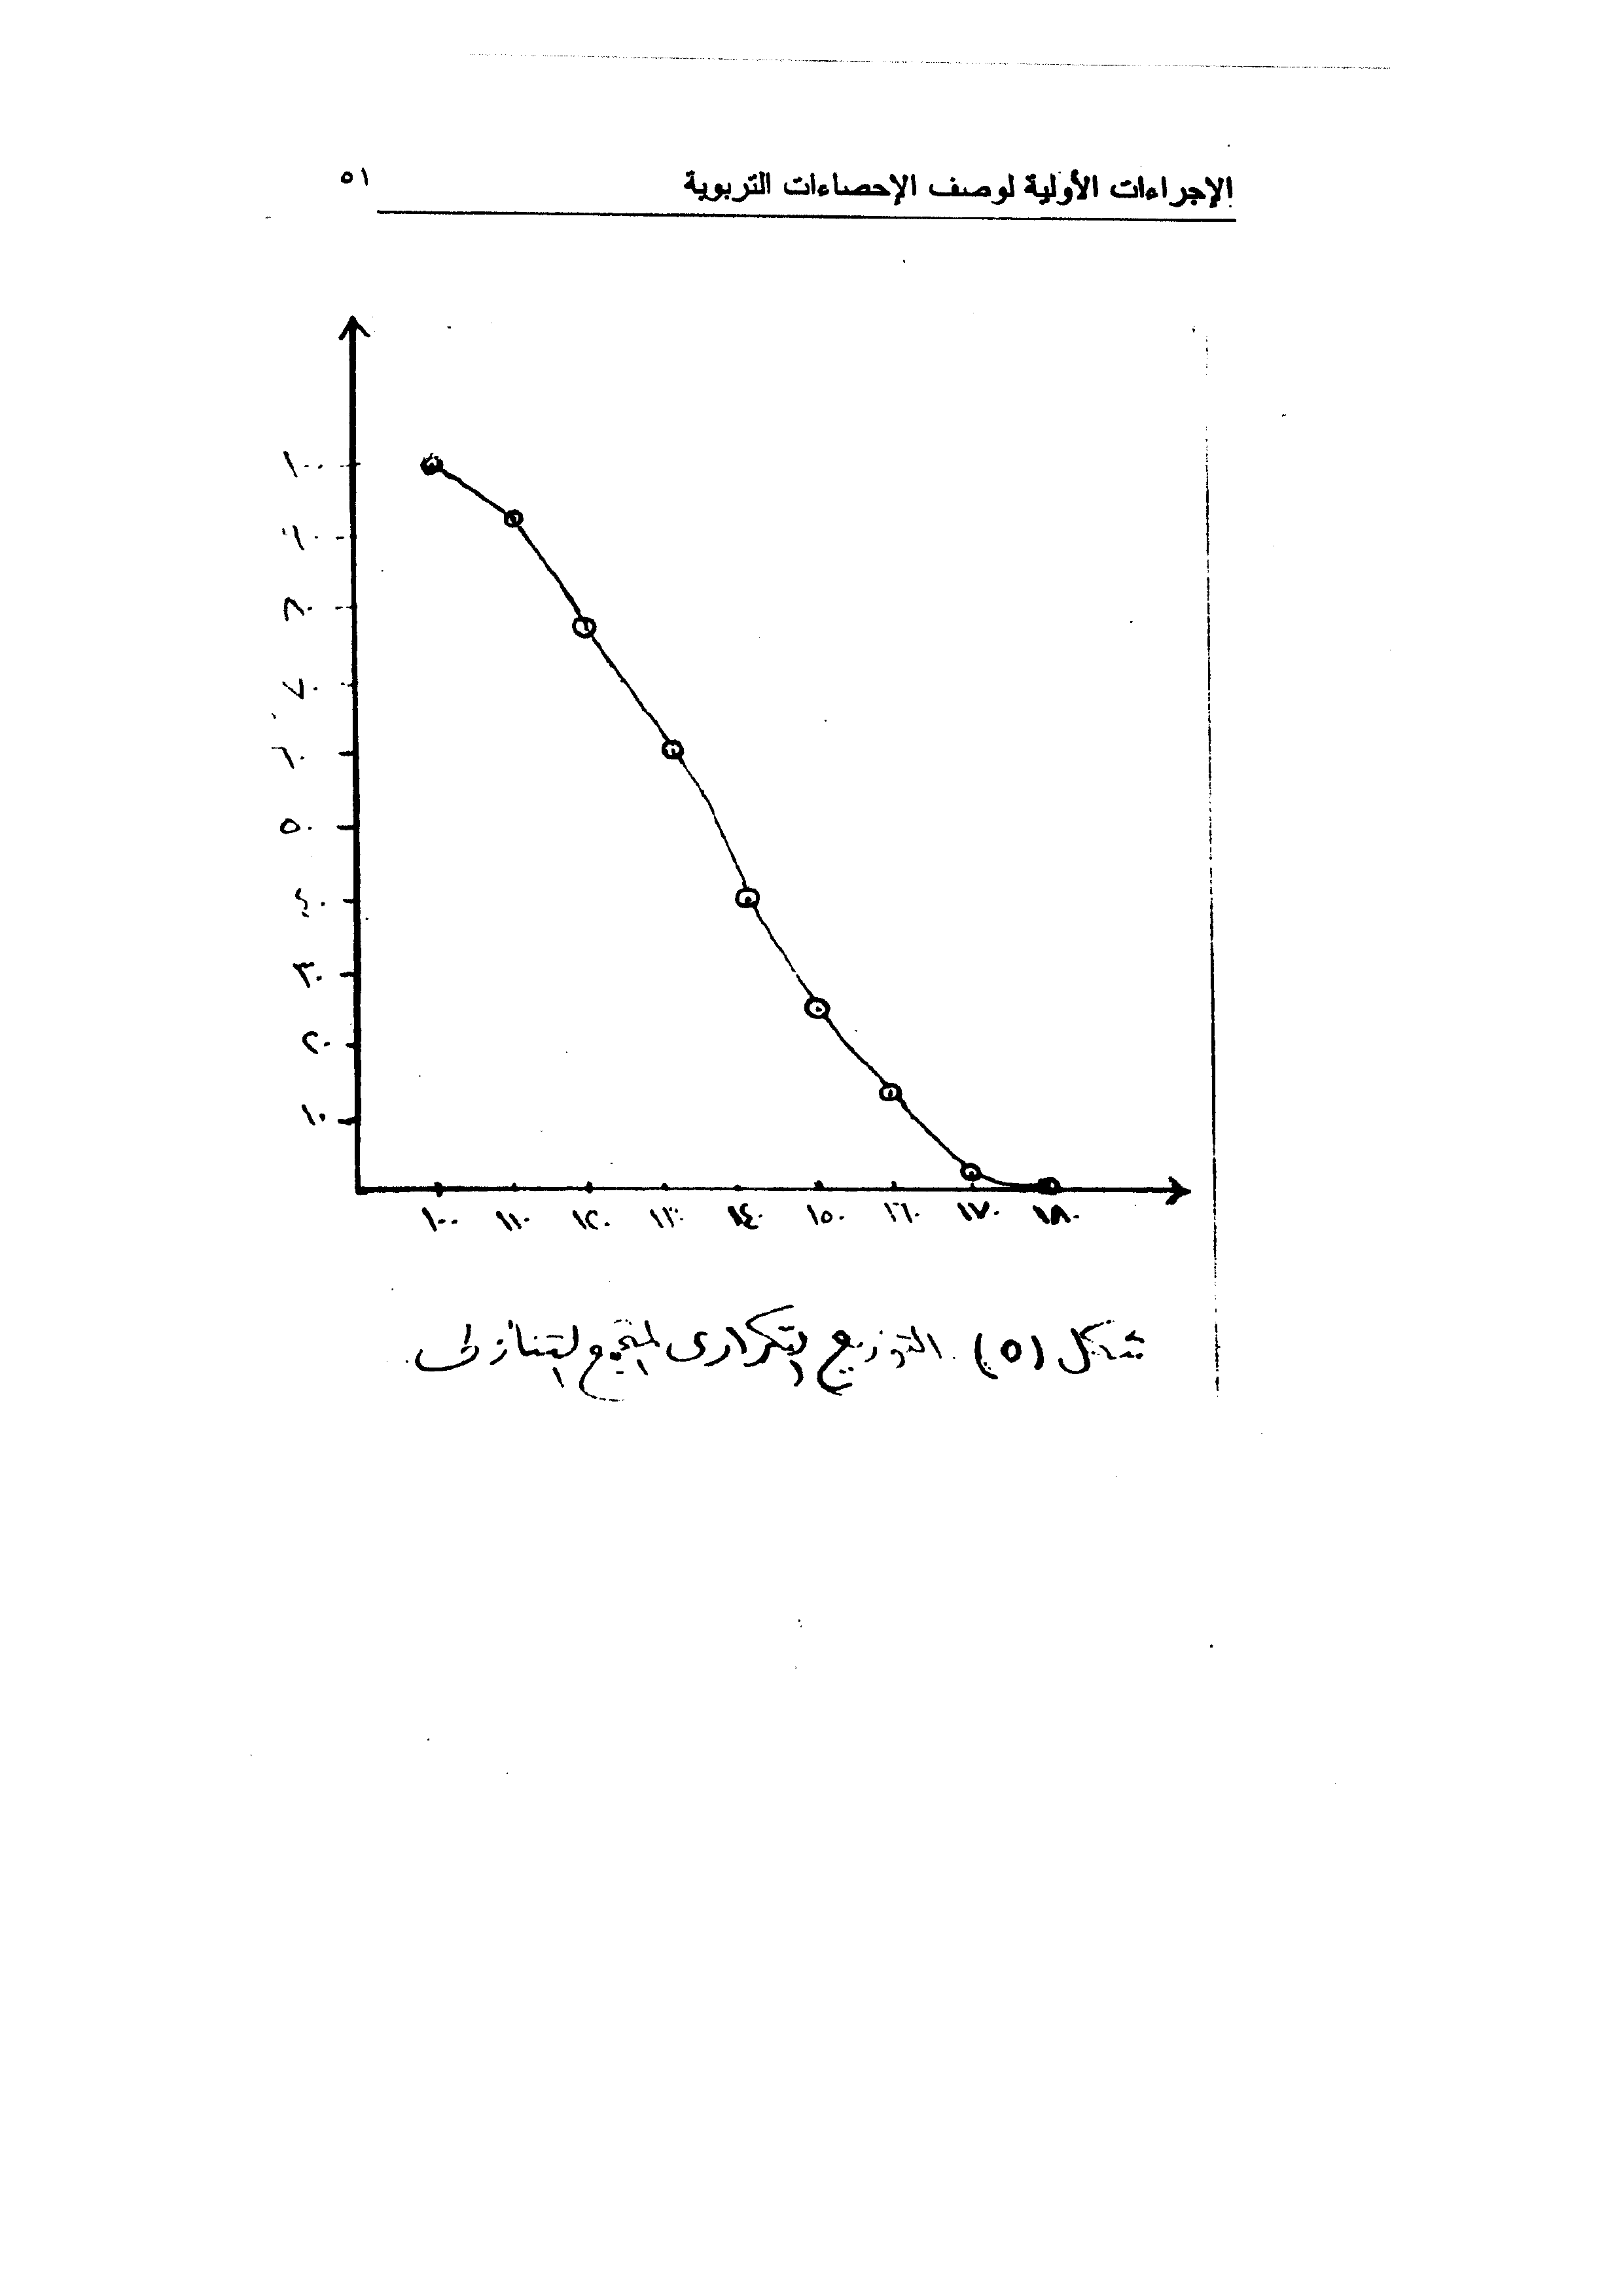 الإجراءات الأولية لوصف الإحصاءات التربوية ٥١
١٠٠
٩٠
٨٠
٧٠
٦٠
٥٠
٤٠
٣٠
٢٠
١٠
١٠٠ ١١٠ ١٢٠ ١٣٠ ١٤٠ ١٥٠ ١٦٠ ١٧٠ ١٨٠
شكل (٥) التوزيع التكرارى المتجمع التنازلى